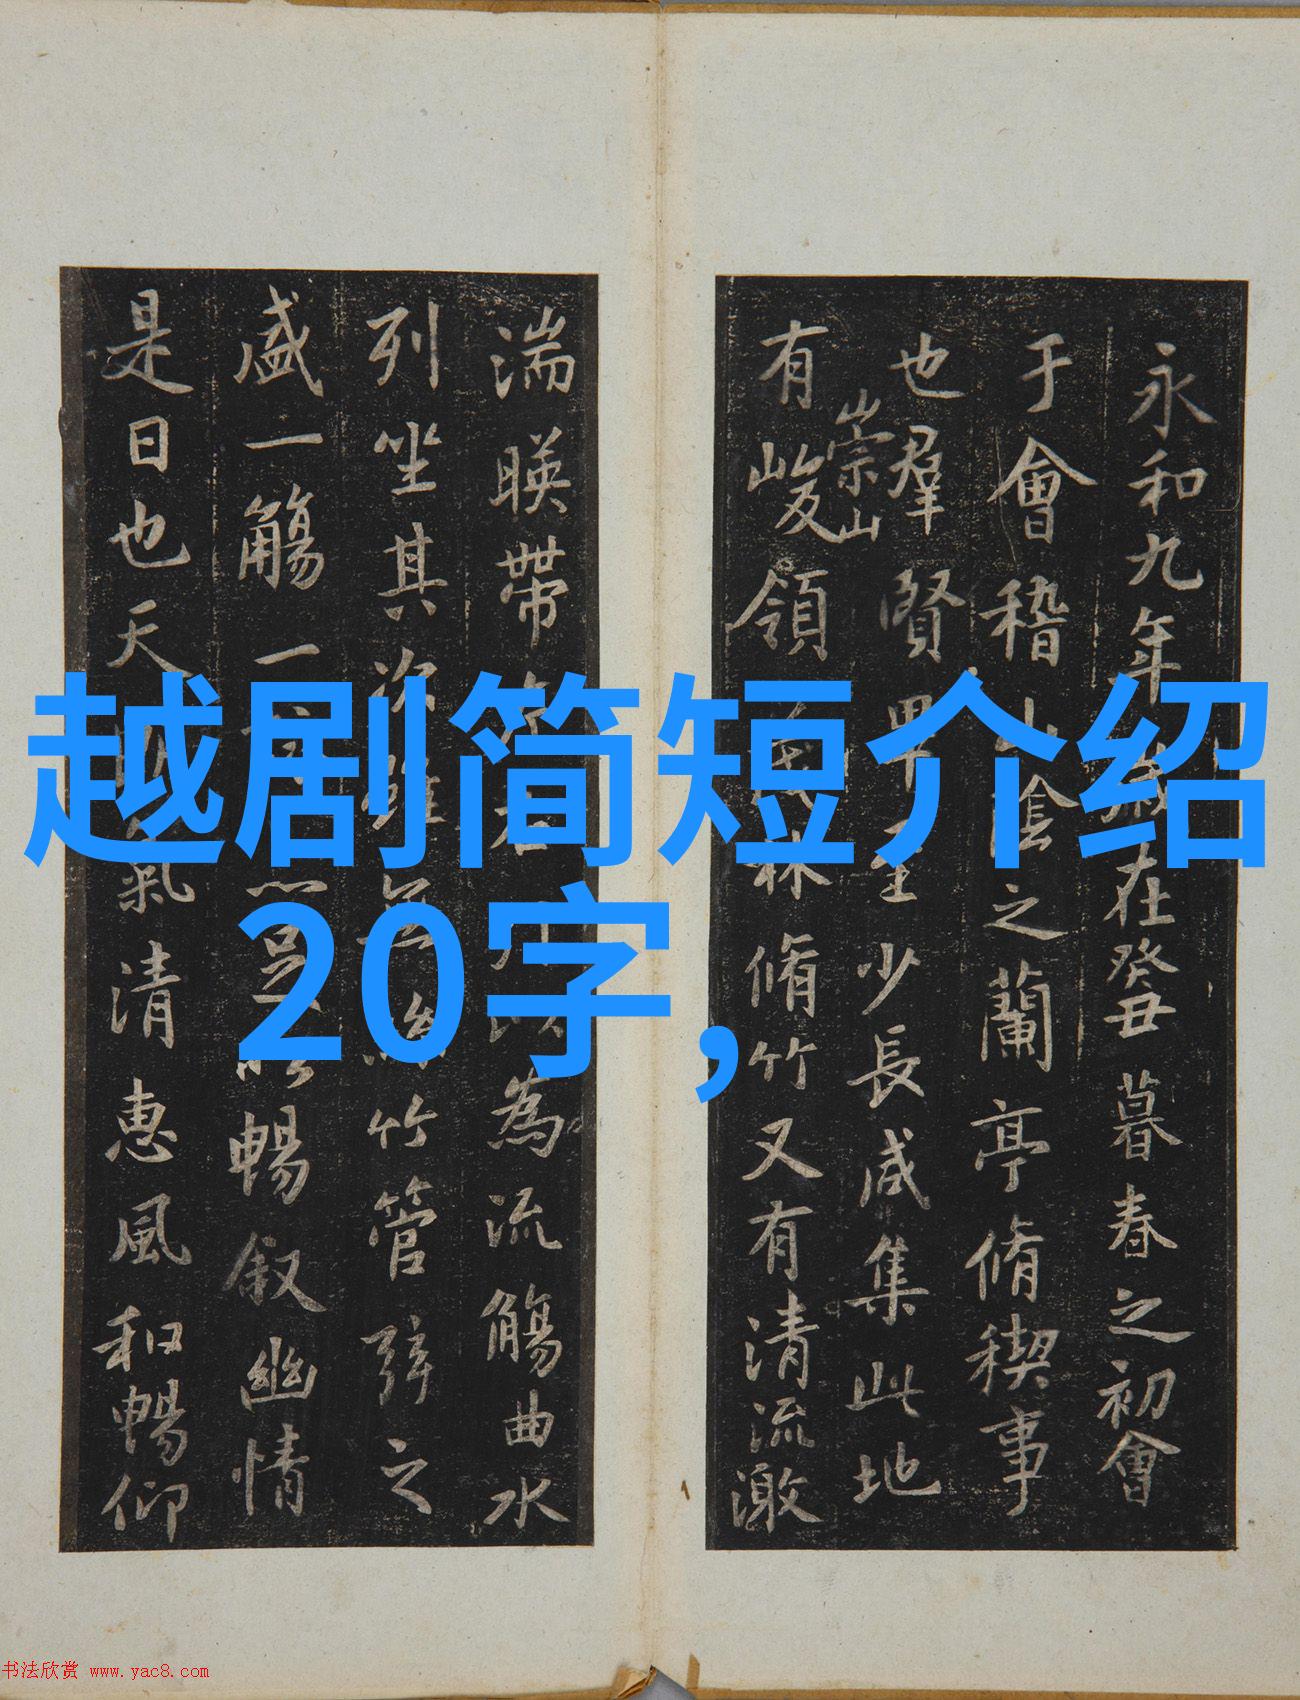 越剧简短介绍
20字，
永和九年歲在癸丑暮春之初會
于會稽山陰之蘭亭脩稧事
也羣賢畢至少長咸集此地
有崇山峻領茂林脩竹又有清流激
湍暎帶左右引以為流觴曲水
列坐其次雖無絲竹管弦之
盛一觴一詠亦足以暢叙幽情
是日也天朗氣清惠風和暢仰
书法欣赏 www.yac8.com